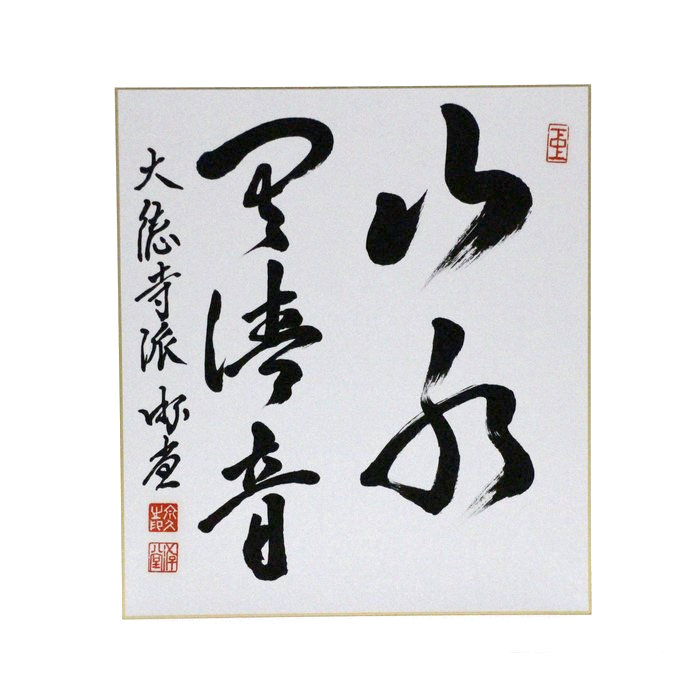 山水
有清音
大徳寺派